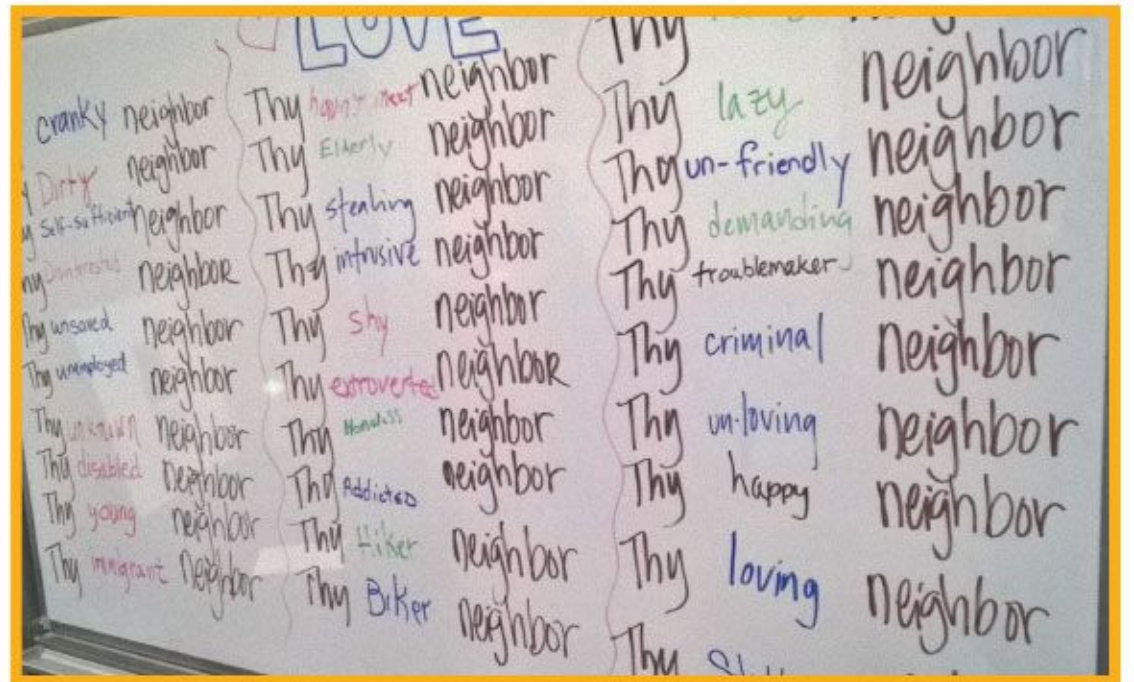 LOVE
cranky neighbor
Dirty neighbor
self-sufficient neighbor
neighboR
Thy unsaved neighbor
Thy unemployed neighbor
Thy unknown neighbor
Thy disabled neighbor
Thy young neighbor
Thy immigrant neighbor
Thy haven't met neighbor
Thy Elderly neighbor
Thy stealing neighbor
Thy intrusive neighbor
Thy shy neighbor
Thy extroverted neighboR
Thy Homeless neighbor
Thy Addicted neighbor
Thy Hiker neighbor
Thy Biker neighbor
Thy neighbor
Thy lazy neighbor
Thy un-friendly neighbor
Thy demanding neighbor
Thy troublemaker neighbor
Thy criminal neighbor
Thy un-loving neighbor
Thy happy neighbor
Thy loving neighbor
Thy